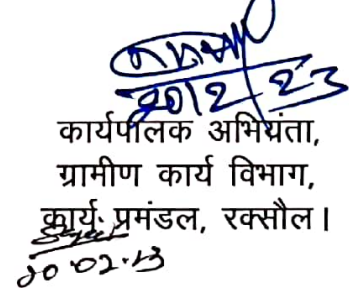 20/2/23
कार्यपालक अभियंता,
ग्रामीण कार्य विभाग,
कार्य प्रमंडल, रक्सौल।
20.02.23